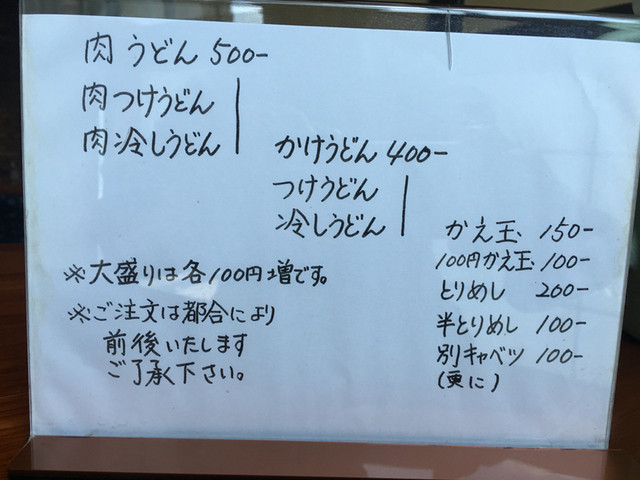 肉うどん 500-
肉つけうどん
肉冷しうどん
かけうどん 400-
つけうどん
冷しうどん
かえ玉 150-
100円かえ玉 100-
とりめし 200-
半とりめし 100-
別キャベツ 100-
(更に)
※大盛りは各100円増です。
※ご注文は都合により
前後いたします
ご了承下さい。